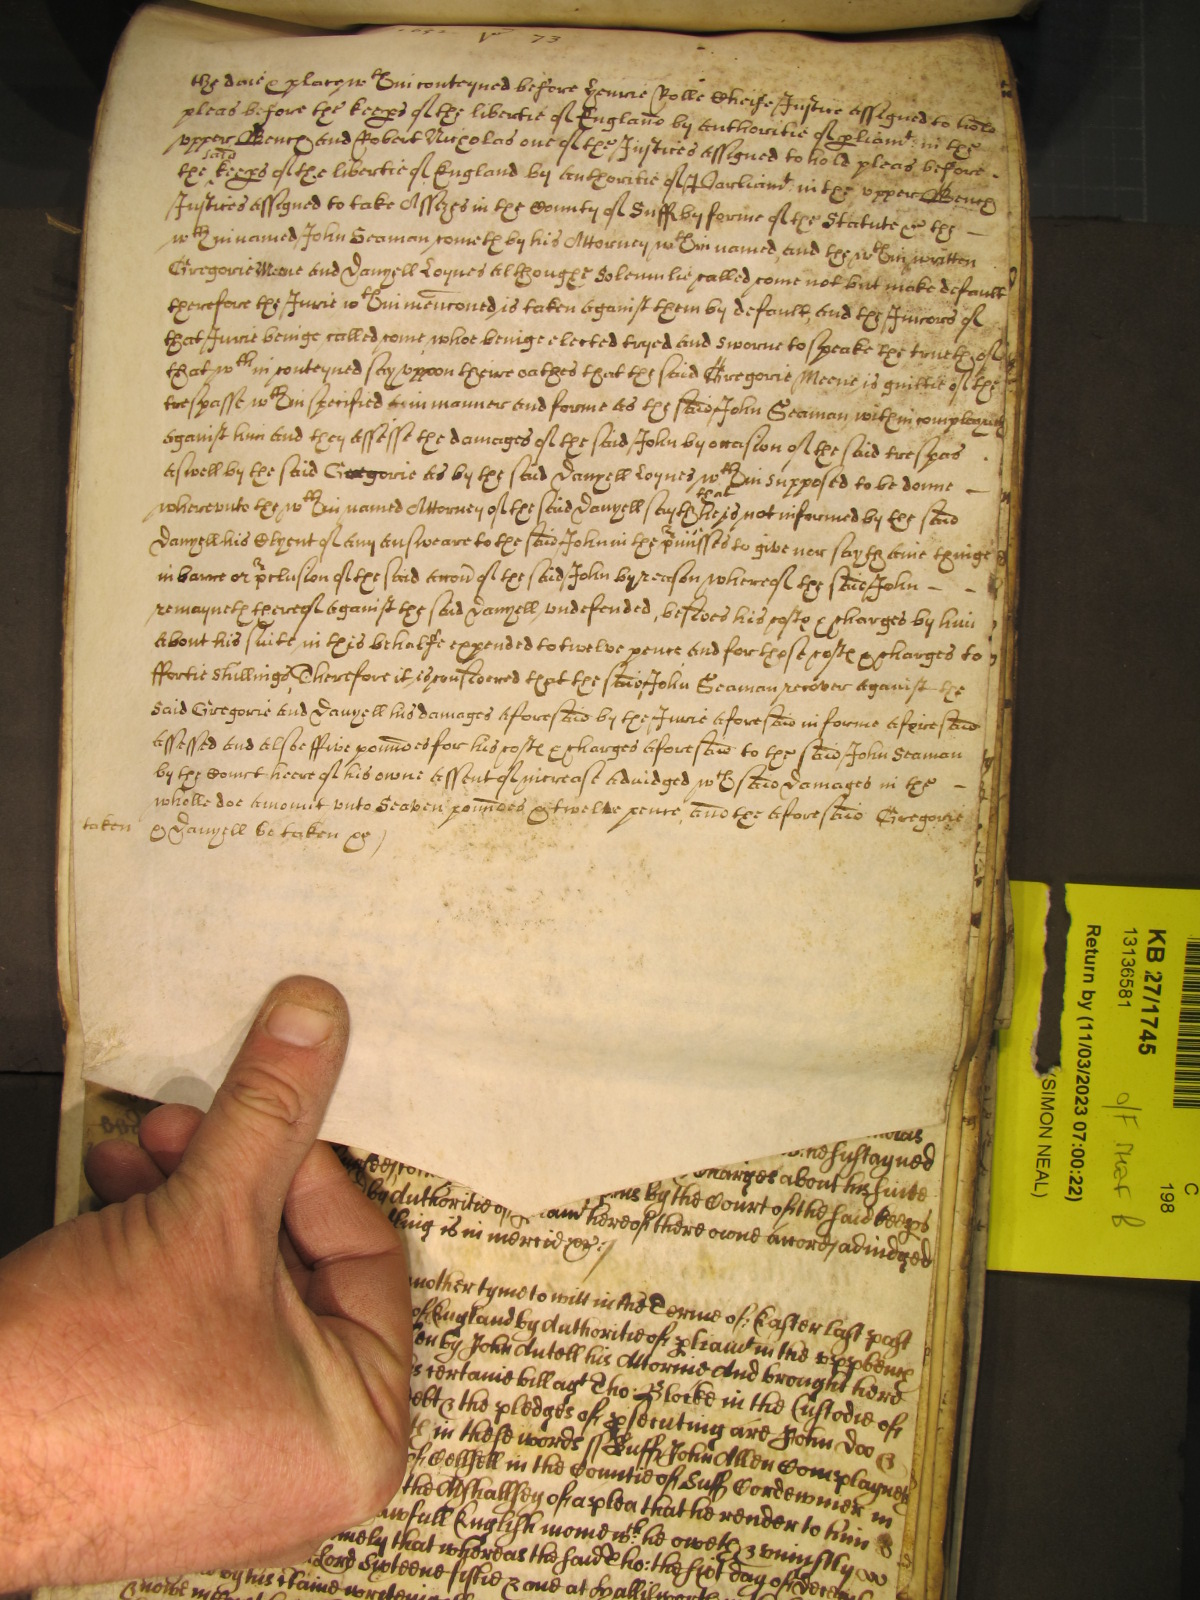 the daie & place wthin conteyned before Henrie Rolle Cheife Justice assigned to hold
pleas before the keeps of the libertie of England by authoritie of pliamt in the
upper Bench and Robert Nicholas one of the Justices assigned to hold pleas before
the said keeps of the libertie of England by authoritie of Parliamt in the upper Bench
Justices assigned to take Assizes in the County of Suff by forme of the Statute &c the
wthin named John Seaman cometh by his Attorney wthin named, and the wthin written
Gregorie Meene and Danyell Loynes although solemnlie called come not but make default
therefore the Jurie wthin menconed is taken against them by default, and the Jurors of
that Jurie beinge called come, whoe beinge elected tryed and sworne to speake the trueth of
that wthin conteyned say uppon theire oathes that the said Gregorie Meene is guiltie of the
trespasse wthin specified in manner and forme as the said John Seaman within compleayneth
against him and they assesse the damages of the said John by occasion of the said trespas
aswell by the said Gregorie as by the said Danyell Loynes wthin supposed to be donne
whereunto the wthin named Attorney of the said Danyell sayth that he is not informed by the said
Danyell his Clyent of any answeare to the said John in the pmisses to give nor sayth anie thinge
in barre or pclusion of the said accon of the said John by reason whereof the said John
remayneth thereof against the said Danyell undefended, besides his costs & charges by him
about his suite in this behalfe expended to twelve pence, and for those costs & charges to
ffortie shillings, Therefore it is considered that the said John Seaman recover against the
said Gregorie and Danyell his damages aforesaid by the Jurie aforesaid in forme aforesaid
assessed and alsoe ffive pounds for his costs & charges aforesaid to the said John Seaman
by the Court heere of his owne assent of increase adiudged wch said damages in the
wholle doe amount unto Seaven pounds & twelve pence, and the aforesaid Gregorie
taken & Danyell be taken &c
sustayned
charges about his suite
by authoritie by the Court of the said keeps
hereof there owne accord adiudged
is in mercie &c
another tyme to witt in the Terme of Easter last past
of England by authoritie of pliamt in the uppbench
by John Antell his Attornie And brought here
certaine bill agt Tho: Blocke in the Custodie of
the pledges of psecuting are John Doo &
in these words ss Suff John Allen Complayneth
in the Countie of Suff Cordewiner in
the Mshallsey of a plea that he render to him
lawfull English monie wch he oweth & uniustly
that whereas the said Tho: the first day of Decemb
Lord Sixteene fiftie & one at
KB 27/1745
13136581
Return by (11/03/2023 07:00:22)
(SIMON NEAL)
C
198
O/F Map B